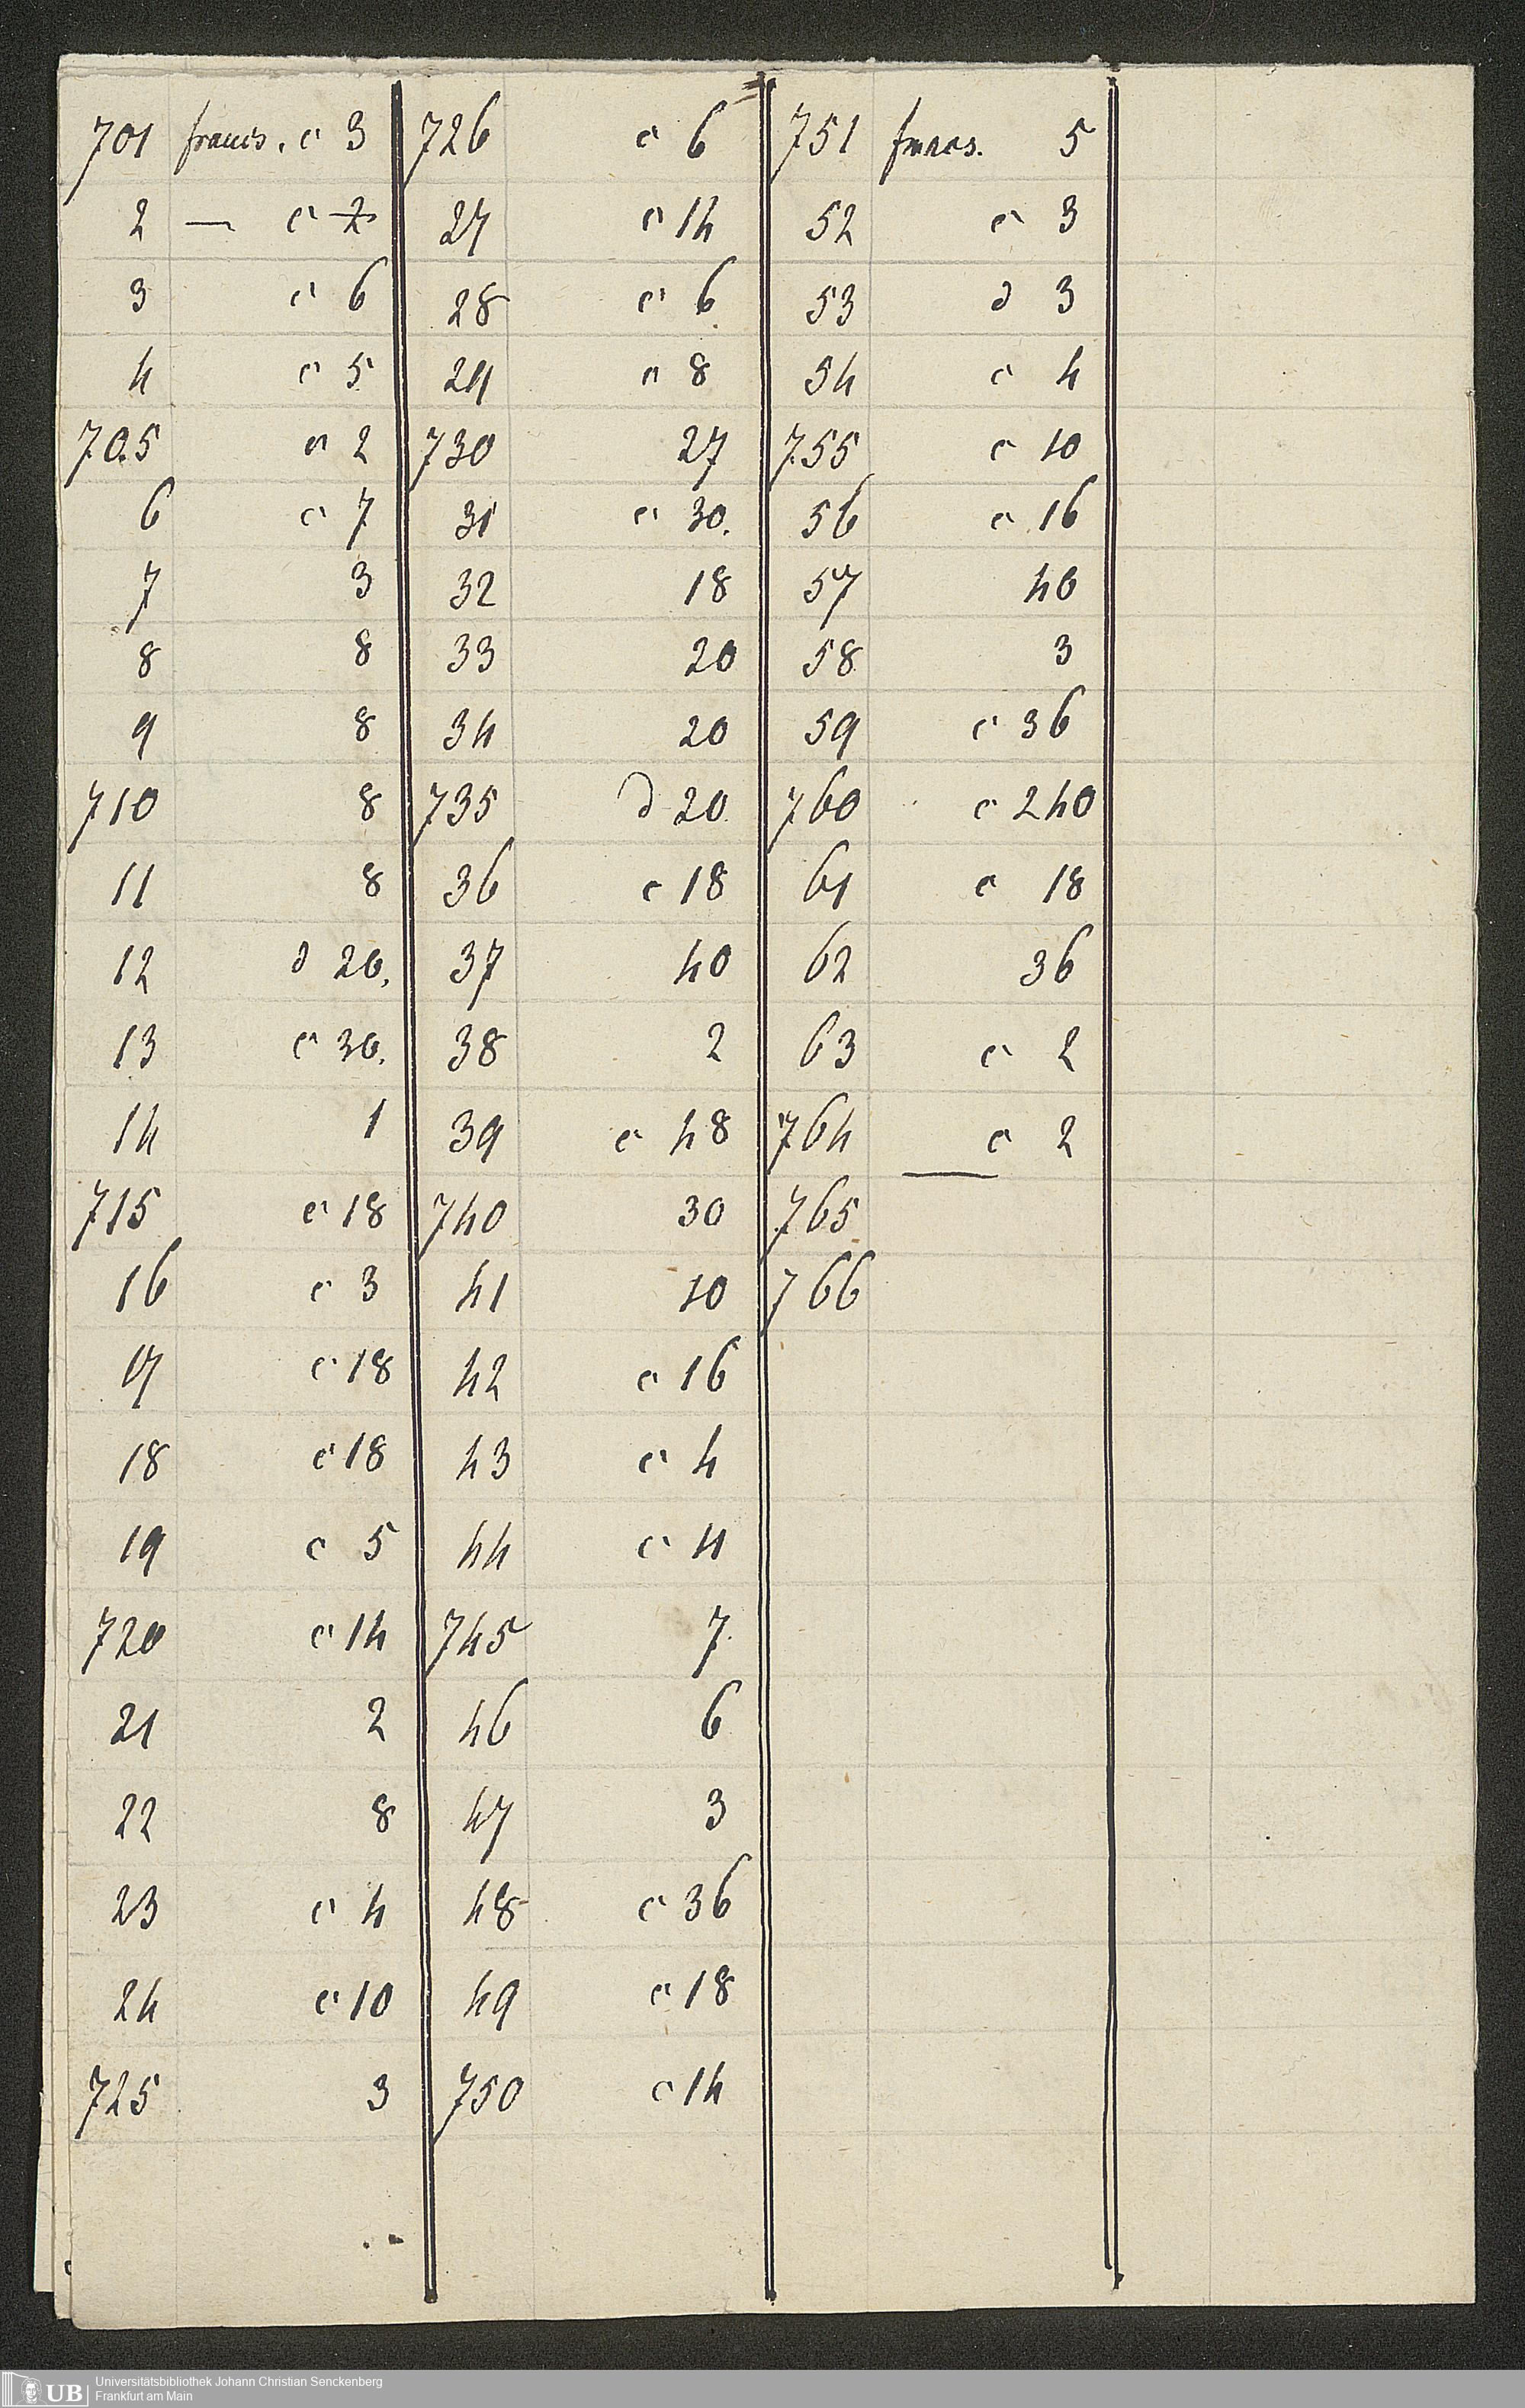 701 francs. c 3 726 c 6 751 francs. 5
2 — c 2 27 c 14 52 c 3
3 c 6 28 c 6 53 d 3
4 c 5 29 c 8 54 c 4
705 c 2 730 27 755 c 10
6 c 7 31 c 30. 56 c 16
7 3 32 18 57 40
8 8 33 20 58 3
9 8 34 20 59 c 36
710 8 735 d 20 760 c 240
11 8 36 c 18 61 c 18
12 d 20. 37 40 62 36
13 c 30. 38 2 63 c 2
14 1 39 c 48 764 c 2
715 c 18 740 30 765
16 c 3 41 10 766
17 c 18 42 c 16
18 c 18 43 c 4
19 c 5 44 c 4
720 c 14 745 7
21 2 46 6
22 8 47 3
23 c 4 48 c 36
24 c 10 49 c 18
725 3 750 c 14
UB Universitätsbibliothek Johann Christian Senckenberg
Frankfurt am Main